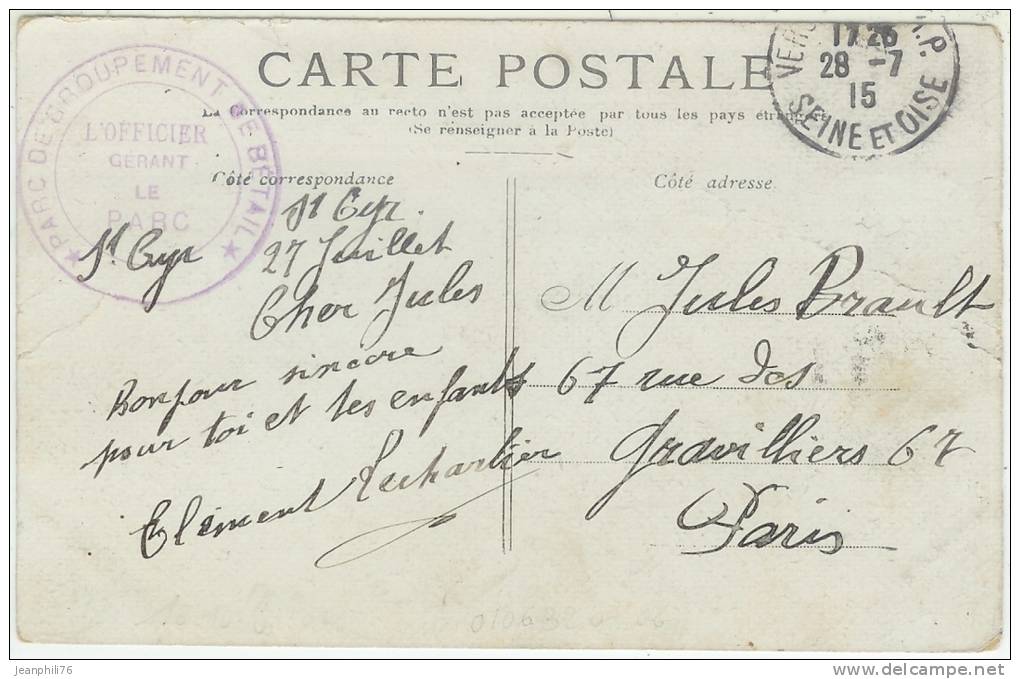 CARTE POSTALE
La Correspondance au recto n'est pas acceptée par tous les pays étrangers
(Se renseigner à la Poste)
PARC DE GROUPEMENT DE BÉTAIL
L'OFFICIER
GÉRANT
LE
PARC
17 26
28 -7
15
SEINE ET OISE
Côté correspondance
Côté adresse
St Cyr
St Cyr
27 Juillet
Cher Jules
Bonjour sincere
pour toi et tes enfants
Clément Lecharlier
M Jules Brault
67 rue des
Gravilliers 67
Paris
jeanphili76
www.delcampe.net